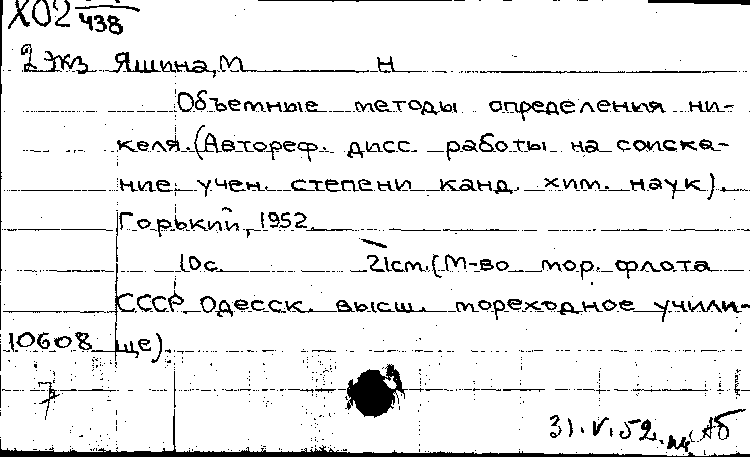 Х02 438
2 экз Яшина, М Н
Объемные методы определения ни-
келя. (Автореф. дисс. работы на соиска-
ние учен. степени канд. хим. наук).
Горький, 1952.
10с. 21см. (М-во мор. флота
СССР. Одесск. высш. мореходное учили-
10608 ще).
31.V.52.